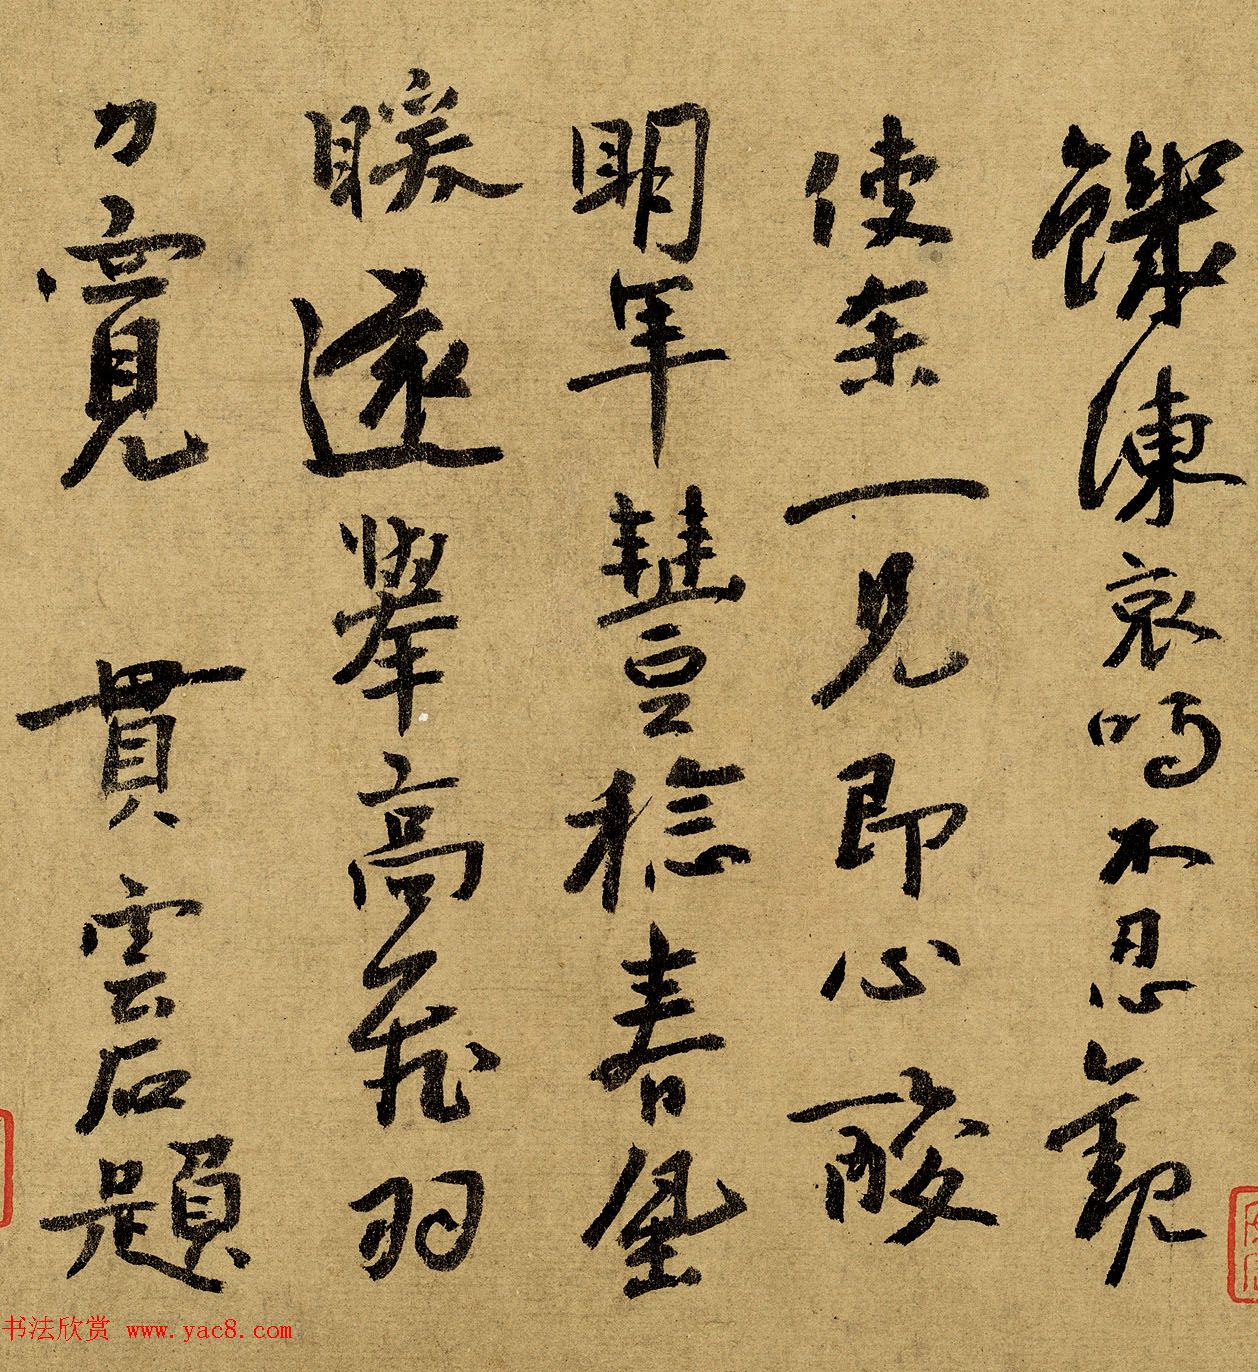 饑凍哀鳴不忍觀
使余一見即心酸
明年豐稔春風暖
遠舉高飛羽
力寬 貫雲石題
书法欣赏 www.yac8.com